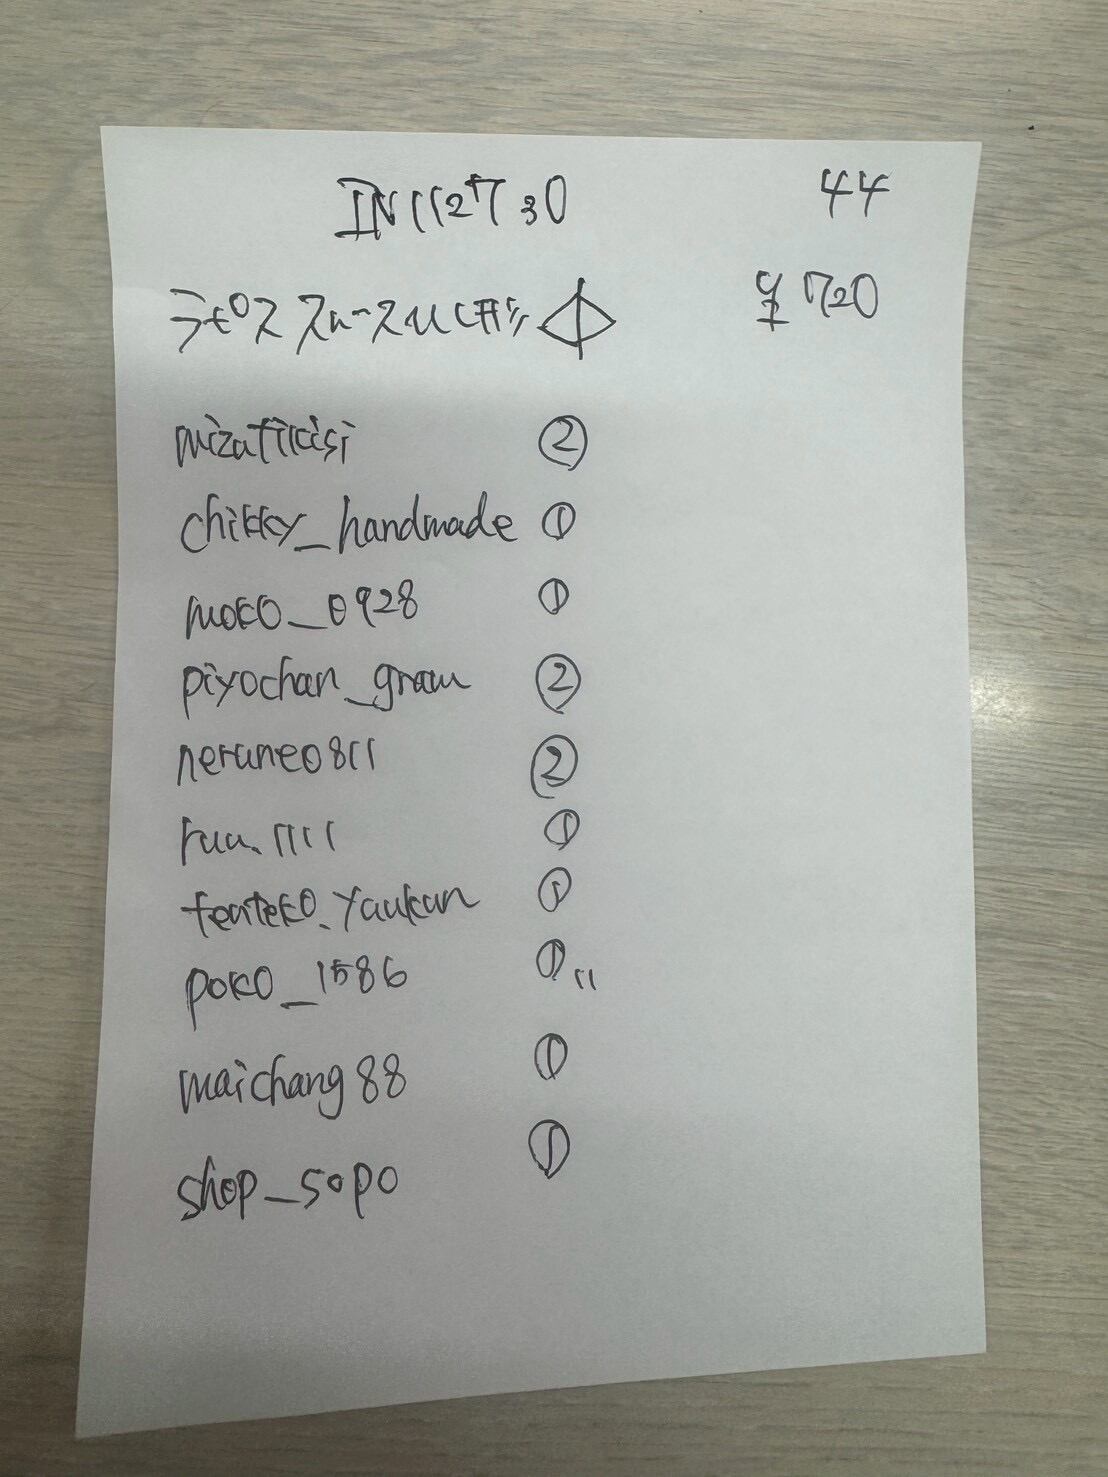 IN112730 44
ラピス スムースひし形 ¥720
mizutikisi ②
chikky_handmade ①
moko_0928 ①
piyochan_gram ②
nerune0811 ②
ruu.1111 ①
tenteko.yaukun ①
poko_1586 ① 11
maichang88 ①
shop_sopo ①